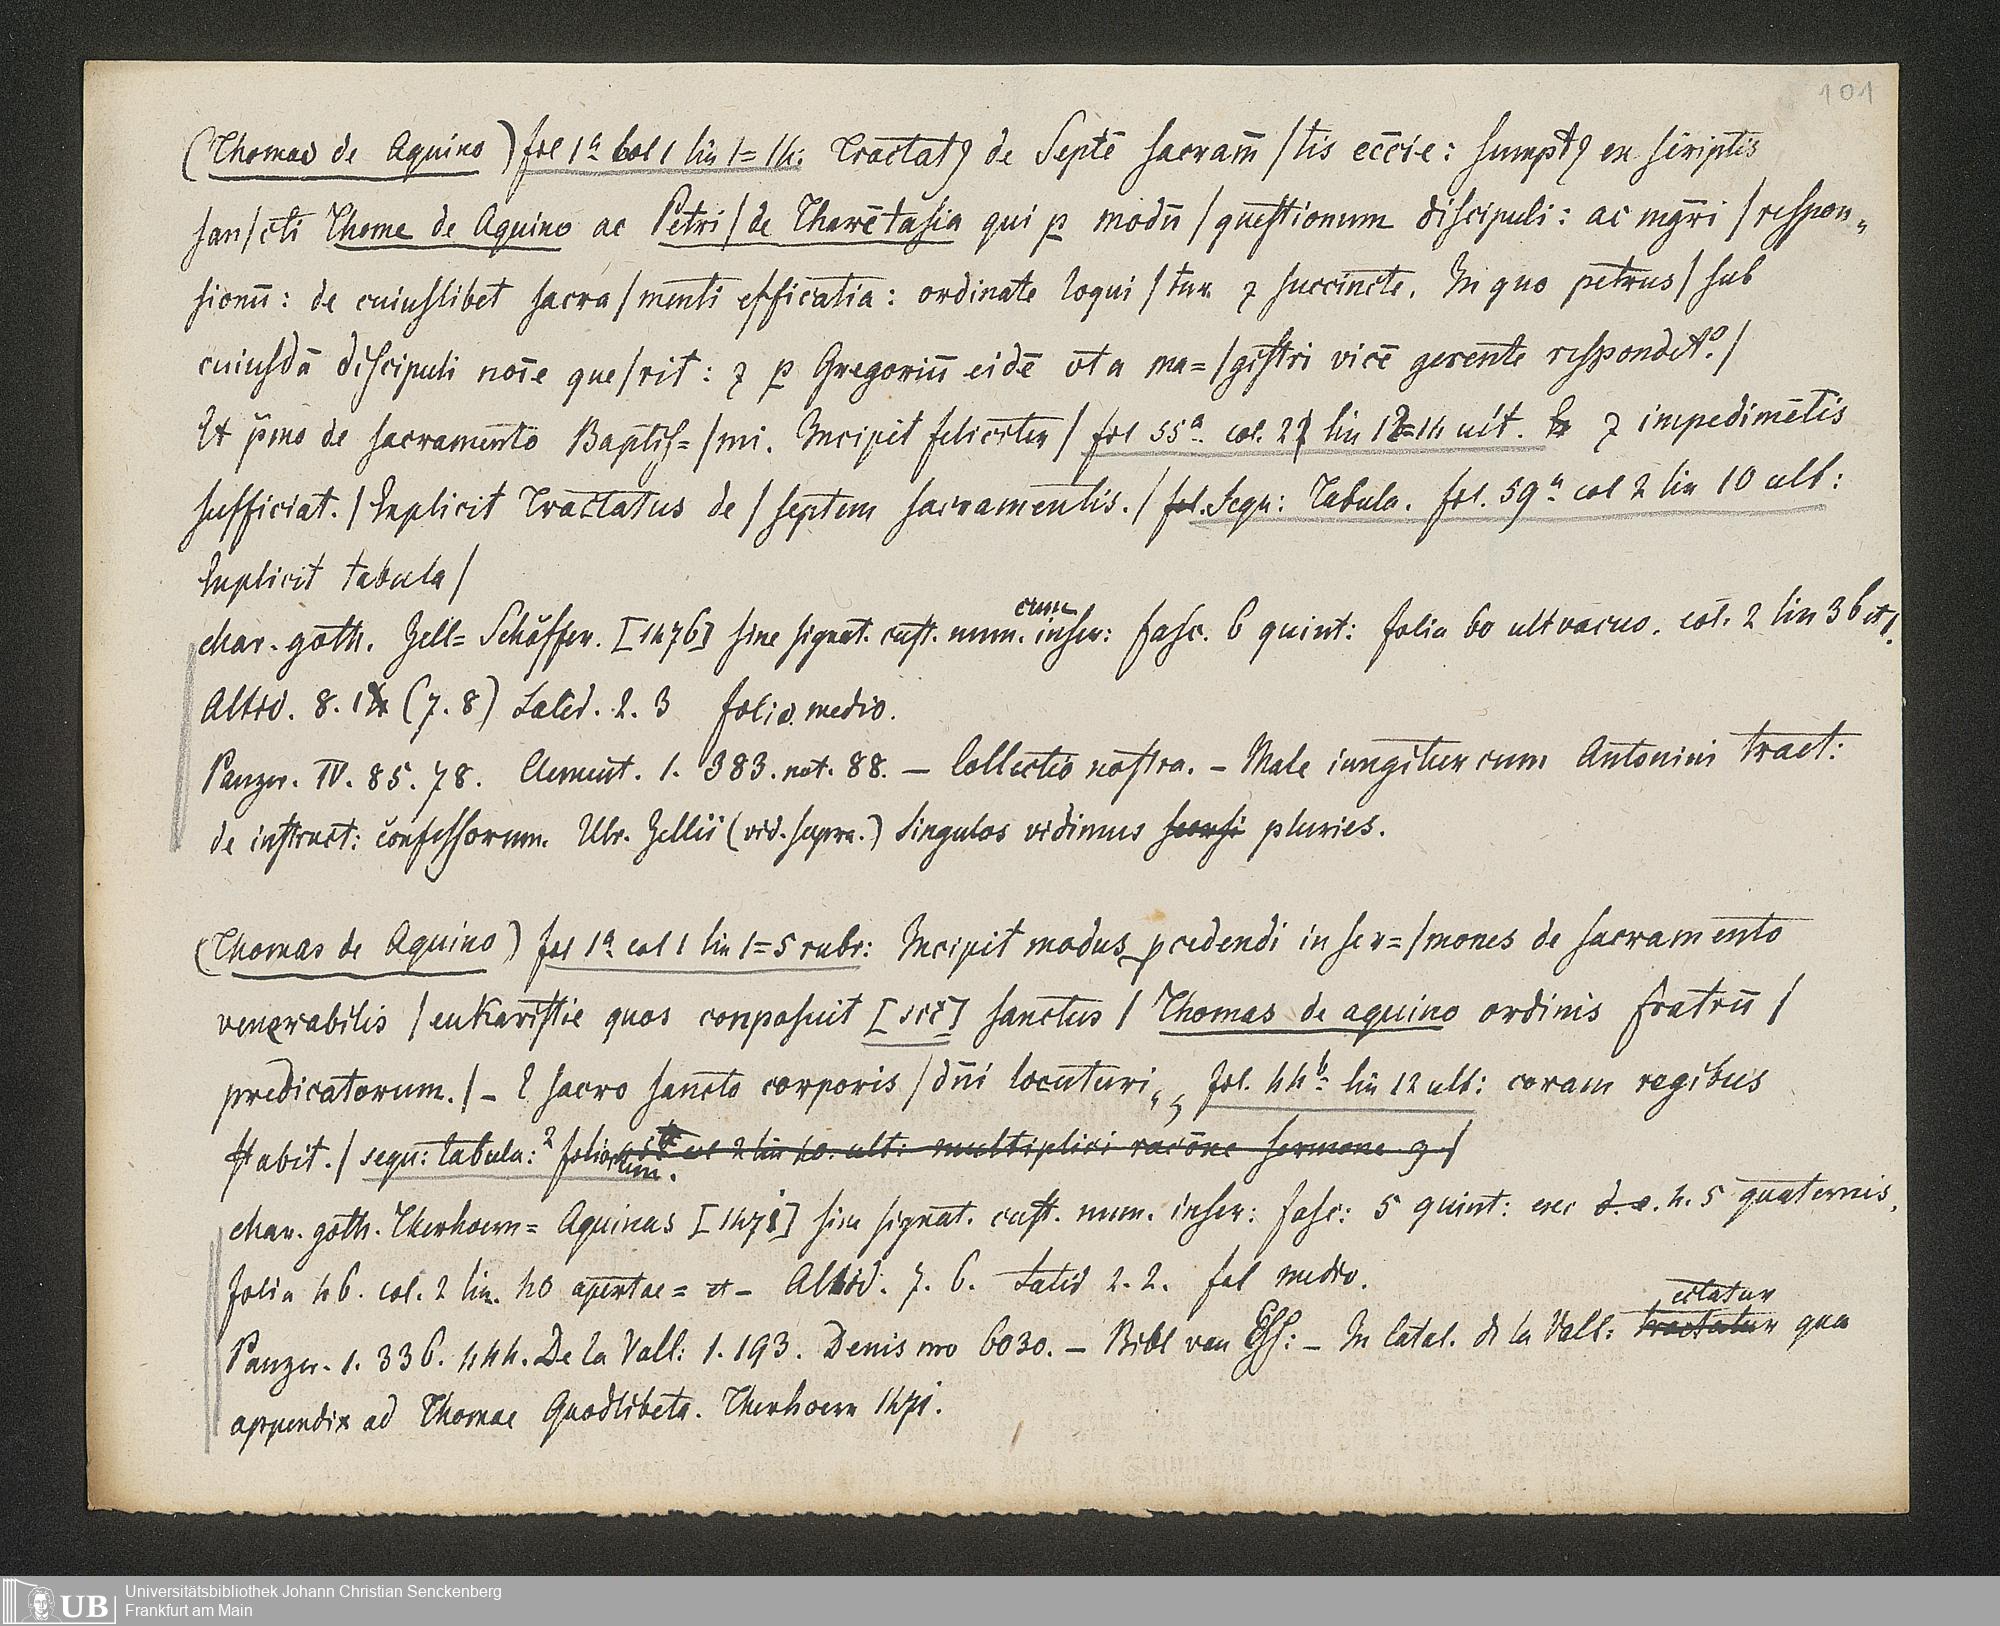 101
(Thomas de Aquino) fol 1a col 1 lin 1=14: Tractatꝰ de Septē sacram̄ / tis eccīe: sumptꝰ ex scriptis
san/cti Thome de Aquino ac Petri / de Tharētasia qui p modū / questionum discipuli: ac mgr̄i / respon„
sionū: de cuiuslibet sacra / menti efficatia: ordinate loqui / tur ⁊ succincte. In quo petrus / sub
cuiusdā discipuli noīe que/rit: ⁊ p Gregoriū eidē vt a ma= / gistri vicē gerente respondetᵒ. /
Et pͥmo de sacramento Baptis= / mi. Incipit feliciter / fol 55a. col. 2 lin 12=14 ult. ⁊ impedimētis
sufficiat. / Explicit Tractatus de / septem sacramentis. / fol. Sequ: Tabula. fol. 59a col 2 lin 10 ult:
Explicit tabula /
char. goth. Zell= Schöffer. [1476] sine signat. cust. num. cum inser: fasc. 6 quint: folia 60 ult vacuo. col. 2 lin 36 et
Altid. 8. 1 (7. 8) Latid. 2. 3 folio. medio.
Panzer. IV. 85. 78. Clement. 1. 383. not. 88. — Collectio nostra. — Male iungitur cum Antonini tract:
de instruct: confessorum. Ulr. Zellii (vid. supra.) Singulos vidimus seorsi pluries.
(Thomas de Aquino) fol 1a col 1 lin 1=5 rubr: Incipit modus pcedendi in ser= / mones de sacramento
venerabilis / eukaristie quos conposuit [sic] sanctus / Thomas de aquino ordinis fratrū /
predicatorum. / – E sacro sancto corporis / dn̄i locuturi „ fol. 44b lin 12 ult: coram regibus
stabit. / sequ: tabula: 2 foliorum. col 2 lin 40. ult: multiplici racōne sermone ⁊ /
char. goth. Therhoern= Aquinas [1471] sine signat. cust. num. inser: fasc: 5 quint: exc d. e. 4. 5 quaternis.
folia 46. col. 2 lin. 40 apertae = et – Altid. 7. 6. Latid 2. 2. fol medio.
Panzer. 1. 336. 444. De la Vall: 1. 193. Denis nro 6030. — Bibl van Eſſ: – In Catal. de la Vall: tractatur citatur qua
appendix ad Thomae Quodlibeta. Therhoern 1471.
UB
Universitätsbibliothek Johann Christian Senckenberg
Frankfurt am Main